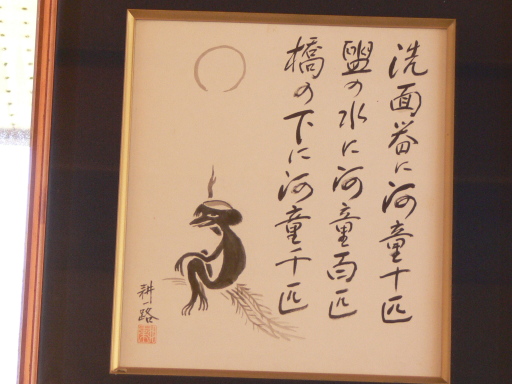 洗面器に河童十匹
盥の水に河童百匹
橋の下に河童千匹
耕一路